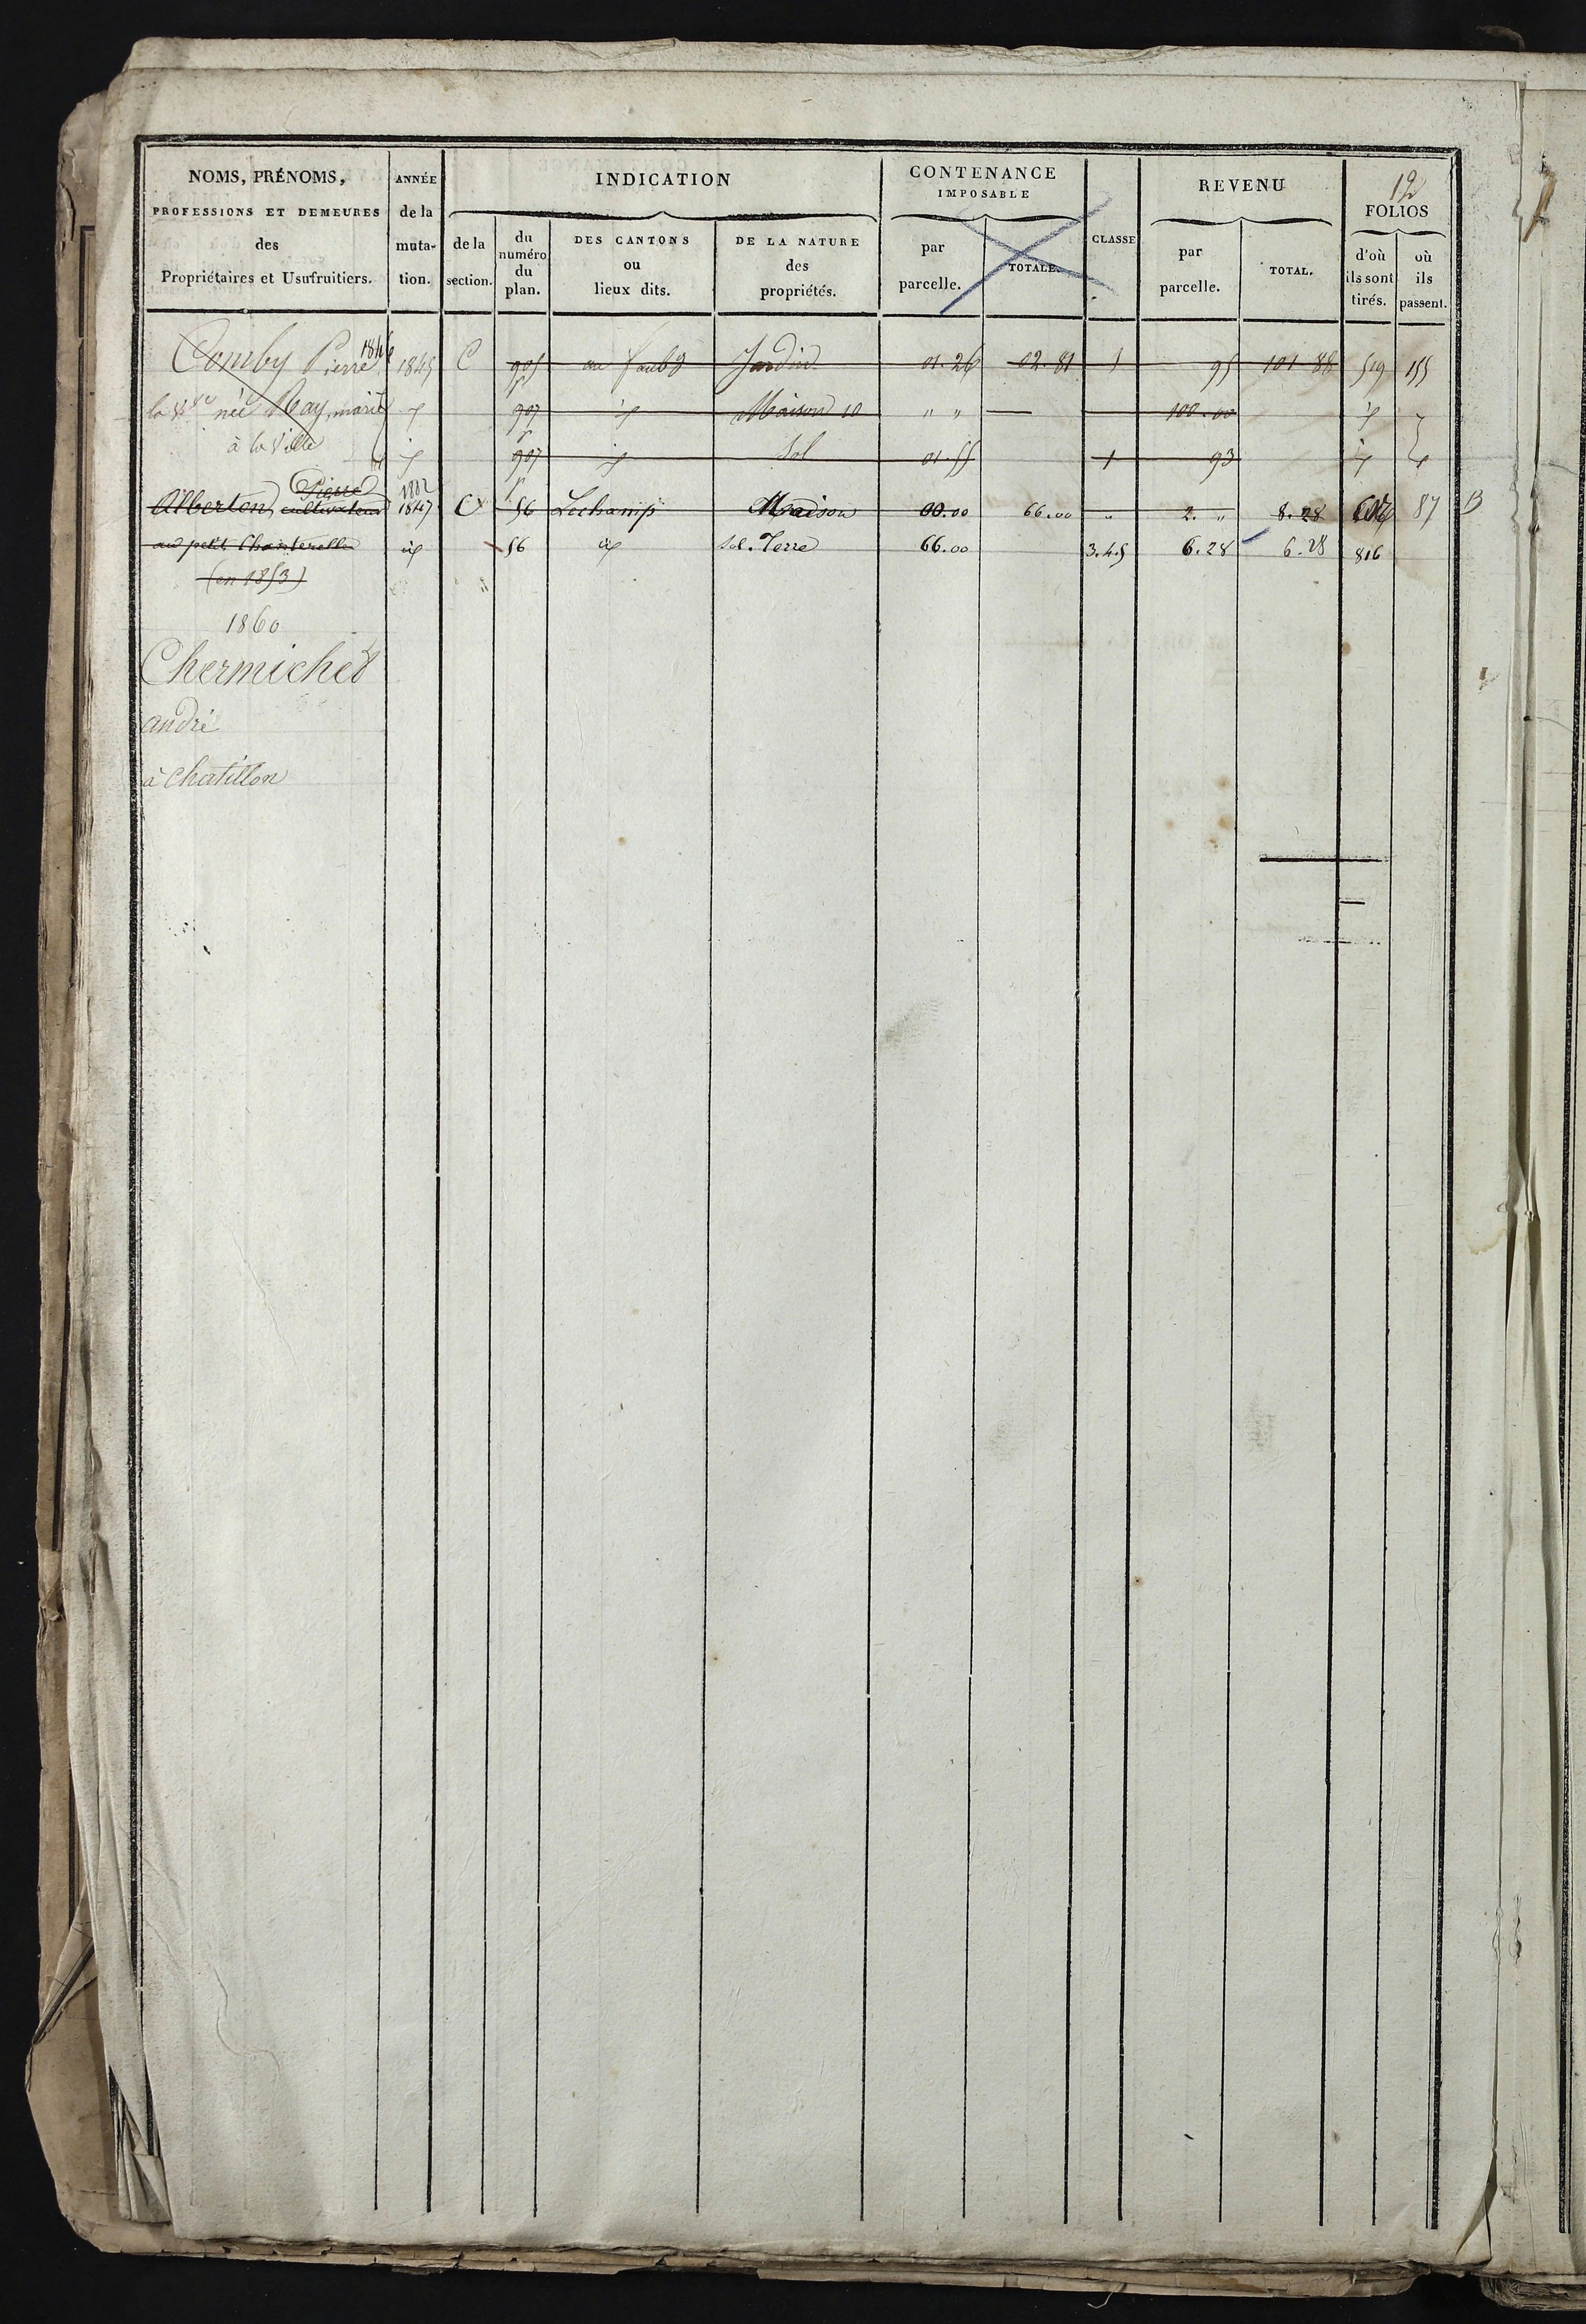 12
NOMS, PRÉNOMS, PROFESSIONS ET DEMEURES des Propriétaires et Usufruitiers.
ANNÉE de la muta-tion.
INDICATION
de la section.
du numéro du plan.
DES CANTONS ou lieux dits.
DE LA NATURE des propriétés.
CONTENANCE IMPOSABLE
par parcelle.
TOTALE.
CLASSE
REVENU
par parcelle.
TOTAL.
FOLIOS
d'où ils sont tirés.
où ils passent.
Comby Pierre 1846 1845 C 905 au faubg Jardin 01.26 02.81 1 95 101 88 519 155
la née May, marie id 907 id Maison 10 " " 100.00 id
à la Ville id 907 id Sol 01.55 1 93 id id
Pierre 1882
Alberton, cultivateur 1847 C 56 Lechamp Maison 00.00 66.00 " 2. " 8.28 87 B
au petit Chanterelle id 56 id Sol. Terre 66.00 3.4.5 6.28 6.28 816
(en 1853)
1860
Chermichet
andré
à Chatillon